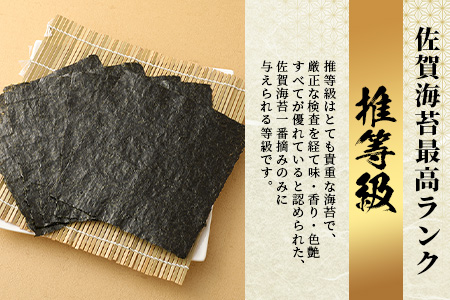 佐賀海苔最高ランク
推等級
推等級はとても貴重な海苔で、
厳正な検査を経て味・香り・色艶
すべてが優れていると認められた、
佐賀海苔一番摘みのみに
与えられる等級です。